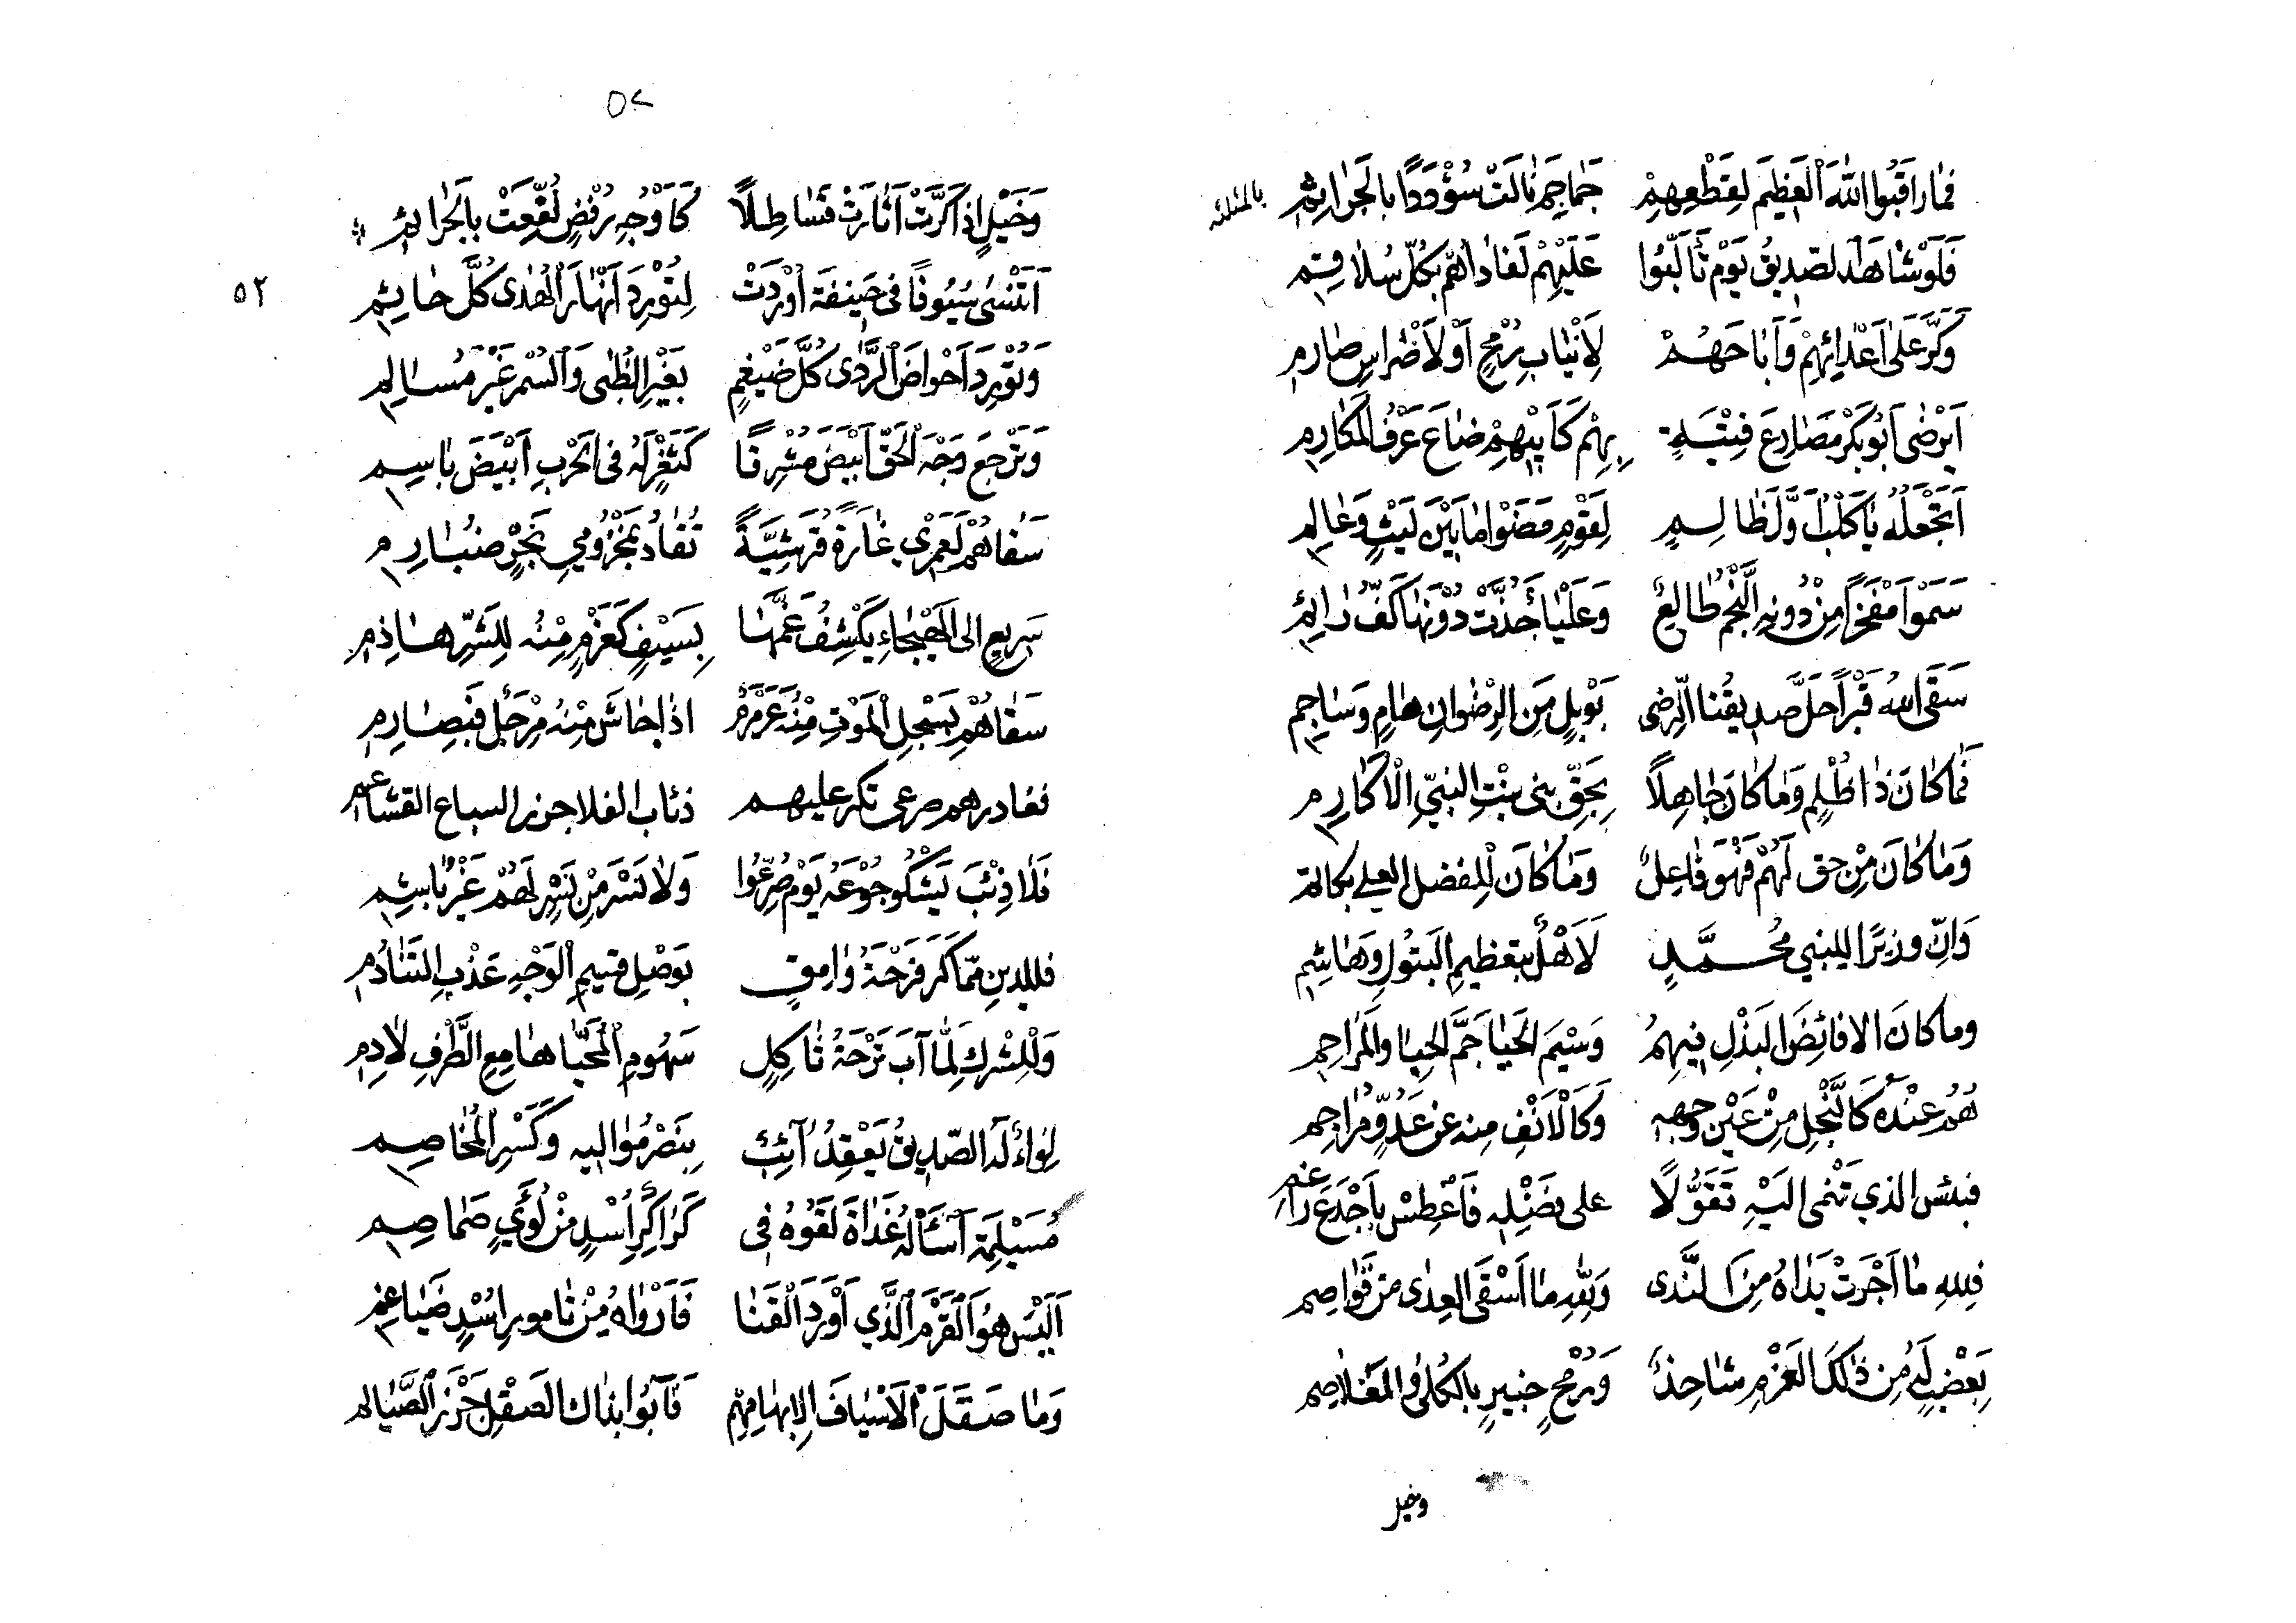 فما راقبوا الله العظيم لقطعهم جماجم نالت سؤددا بالجراثم
بالمثلثه
فلو شاهد الصديق يوم تألبوا عليهم لفاداهم بكل سلاقم
وكر على أعدائهم وأباحهم لأنياب رمح أو لأضراس صارم
أيرضى أبو بكر مصارع فتية بهم كأبيهم ضاع عرف المكارم
أتجعله يا كلب ول لظالم لقوم مضوا ما بين ليث وعالم
سموا مفخرا من دونه النجم طالع وعليا أجذت دونها كف رائم
سقى الله قبرا حل صديقنا الرضى بوبل من الرضوان هام وساجم
فما كان ذا ظلم وما كان جاهلا بحق بني بنت النبي الأكارم
وما كان من حق لهم فهو فاعل وما كان للفضل العلي بكاتم
وان وزيرا للنبي محمد لأهل بتعظيم البتول وهاشم
وما كان الا فائض البذل فيهم وسيم الحيا جم الحيا والمراحم
هم عنده كالنجل من عين وجهه وكالأنف منه عن عدو مزاحم
فبئس الذي تنمى اليه تقولا على فضله فاعطس بأجدع راغم
فلله ما أجرت يداه من الندى ولله ما أسقى العدى من قواصم
بعضب له من ذلك العزم شاحذ ورمح خبير بالكلى والغلاصم
وخيل
٥٢
وخيل إذا كرت أثارت قساطلا كأوجه رفض لفعت بالجرائم
٥٢
أتنسى سيوفا في حنيفة أوردت لتورد أنهار الهدى كل حائم
وتورد أحواض الردى كل ضيغم بغير الظبى والسمر غير مسالم
وترجع وجه الحق أبيض مشرقا كثغر له في الحرب أبيض باسم
سقاهم لعمري غارة قرشية تقاد بمخزومي بحر ضبارم
سريع الى الهيجاء يكشف غمها بسيف كعزم منه للشر هاذم
سقاهم بسجل الموت منه عرمرم اذا جاش منه مرجل فبصارم
فغادرهم صرعى تكر عليهم ذئاب الفلا جزر السباع القشاعم
فلا ذئب يشكو جوعه يوم صرعوا ولا نسر من نسر لهم غير باشم
فللدين مما كر فرحة وامق بوصل قسيم الوجه عذب التنادم
وللشرك لما آب ترحة ثاكل سهوم المحيا هامع الطرف لادم
لواء له الصديق يعقد آئب بنصر مواليه وكسر المخاصم
مسيلمة آسأله غداة لقوه في كراكر أسد من لؤي صماصم
أليس هو القرم الذي أورد القنا فأرواه من تامور أسد ضياغم
وما صقل الأسياف الا بهامهم فآبوا بذاك الصقل جزر الصيالم